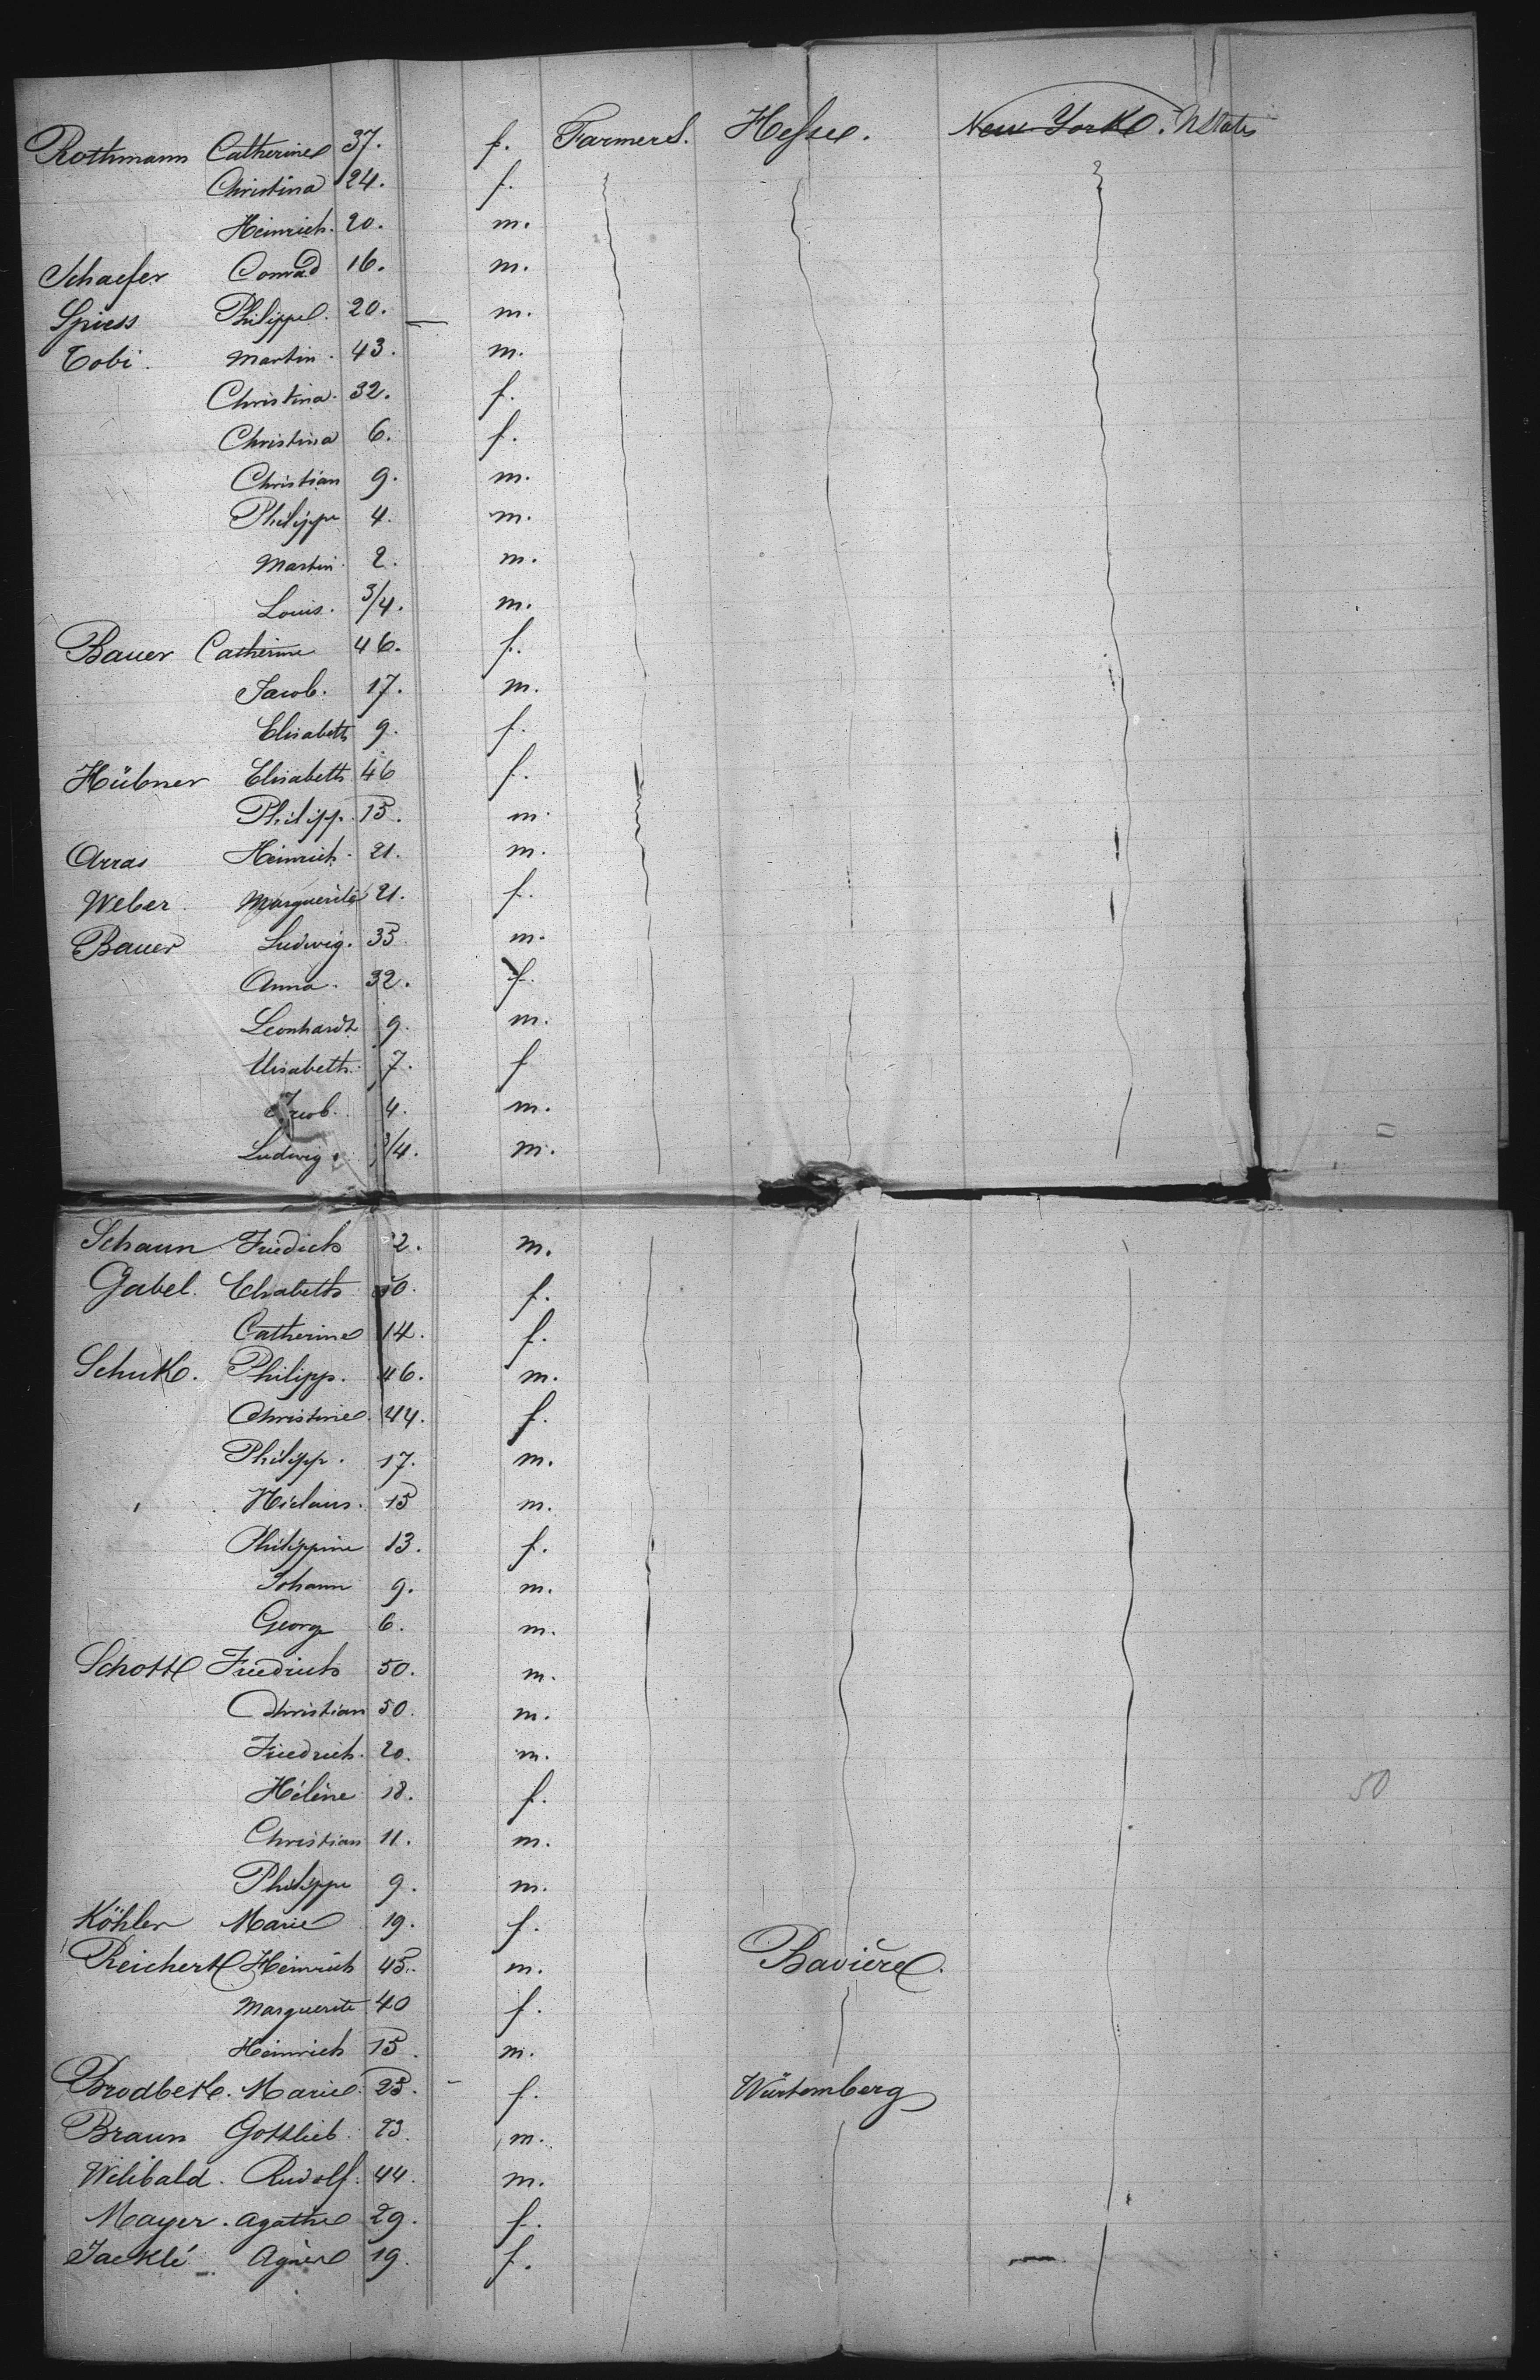 Rothmann Catherine 37. f. Farmers. Hesse. New York. U States
Christina 24. f.
Heinrich. 20. m.
Schaefer Conrad 16. m.
Spiess Philippe. 20. m.
Tobi. Martin. 43. m.
Christina. 32. f.
Christina 6. f.
Christian 9. m.
Philippe 4. m.
Martin. 2. m.
Louis. 3/4. m.
Bauer Catherine 46. f.
Jacob. 17. m.
Elisabeth 9. f.
Hübner Elisabeth 46 f.
Philipp. 15. m.
Arras Heinrich. 21. m.
Weber Marguerite 21. f.
Bauer Ludwig. 35. m.
Anna. 32. f.
Leonhardt 9. m.
Elisabeth. 7. f
Jacob. 4. m.
Ludwig. 3/4. m.
Schaun Friedich 2. m.
Gabel. Elisabeth 50. f.
Catherine 14. f.
Philipp. 46. m.
Christine. 44. f.
Philipp. 17. m.
Niclaus. 15 m.
Philippine 13. f.
Johann 9. m.
Georg 6. m.
Schott Friedrich 50. m.
Christian 50. m.
Friedrich. 20. m.
Hélène 18. f. 50
Christian 11. m.
Philippe 9. m.
Köhler Marie 19. f.
Reichert Heinrich 45. m. Bavière.
Marguerite 40 f.
Heinrich 15. m.
Brodbeck. Marie. 25. f. Würtemberg
Braun Gottlieb. 23. m.
Wilibald. Rudolf. 44. m.
Mayer. Agathe 29. f.
Jaeklé Agnès 19. f.